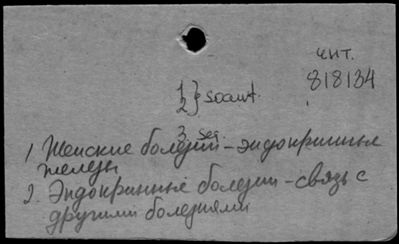 чит.
818134
1
2 } socaut.
3 seg.
1 Женские болезни - эндокринные
железы
2. Эндокринные болезни - связь с
другими болезнями